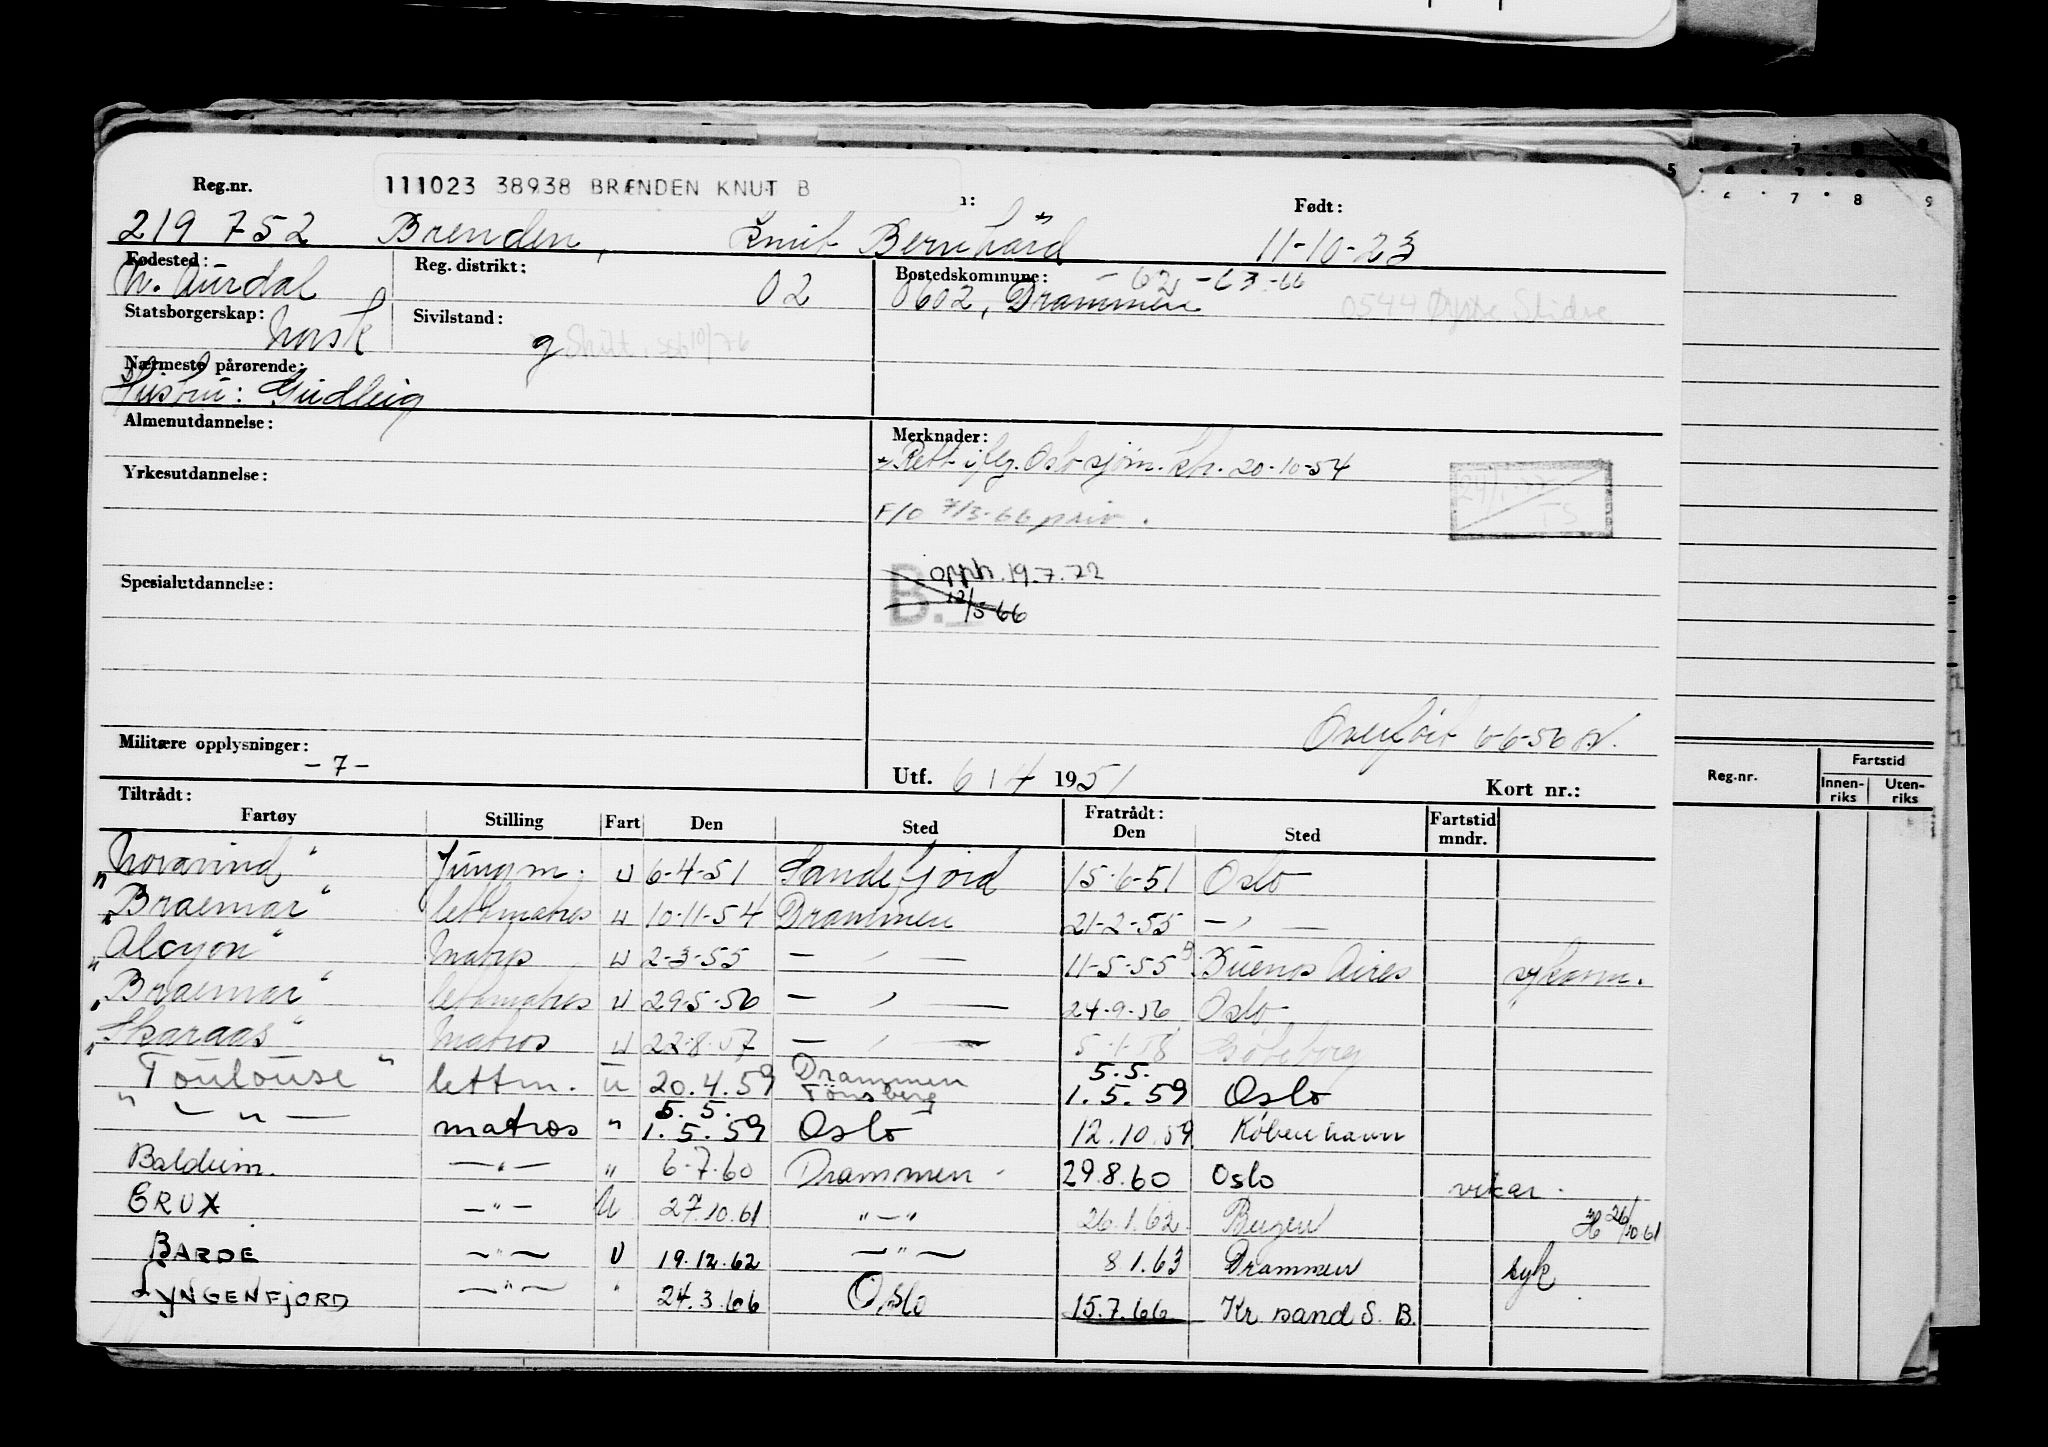 Reg.nr. 111023 38938 BRÆNDEN KNUT B Født:
219 752 Brenden, Knut Bernhard * 11-10-23
Fødested: Reg. distrikt: Bostedskommune: -62-63-66
N. Aurdal 02 0602, Drammen 0544 Øystre Slidre
Statsborgerskap: Norsk Sivilstand: g Skilt.
Nærmeste pårørende:
Hustru: Gudleig
Almenutdannelse: Merknader:
* Rett iflg. Oslo sjøm. ktr. 20-10-54
Yrkesutdannelse:
F/O 7/3-66 priv.
Spesialutdannelse: B. opph. 19.7.72
12/5-66
Overført 6-6-56
Militære opplysninger:
-7-
Utf. 6/4 1951 Kort nr.:
Tiltrådt: Fratrådt: Fartstid
Fartøy Stilling Fart Den Sted Den Sted mndr.
"Novavind" Jungm. U 6-4-51 Sandefjord 15-6-51 Oslo
"Braemar" lettmatros U 10-11-54 Drammen 21-2-55 — " —
"Alcyon" Matros U 2-3-55 — " — 11-5-55 Buenos Aires sykom.
"Braemar" lettmatros U 29-5-56 — " — 24-9-56 Oslo
"Skaraas" Matros U 22-8-57 — " — 5-1-58 Göteborg
"Toulouse" lettm. U 20.4.59 Drammen Tønsberg 5.5. 1.5.59 Oslo
" — " — matros " 5.5. 1.5.59 Oslo 12.10.59 København
Balduin. — " — " 6-7-60 Drammen 29.8.60 Oslo vikar.
CRUX — " — U 27.10.61 " — " 26.1.62 Bergen 26/10 61
BARDE — " — U 19.12.62 — " — 8 1.63 Drammen syk
LYNGENFJORD — " — " 24.3.66 Oslo 15.7.66 Kr. sand S. B.
5 6 7 8 9
7
Reg.nr. Fartstid
Innen-riks Uten-riks